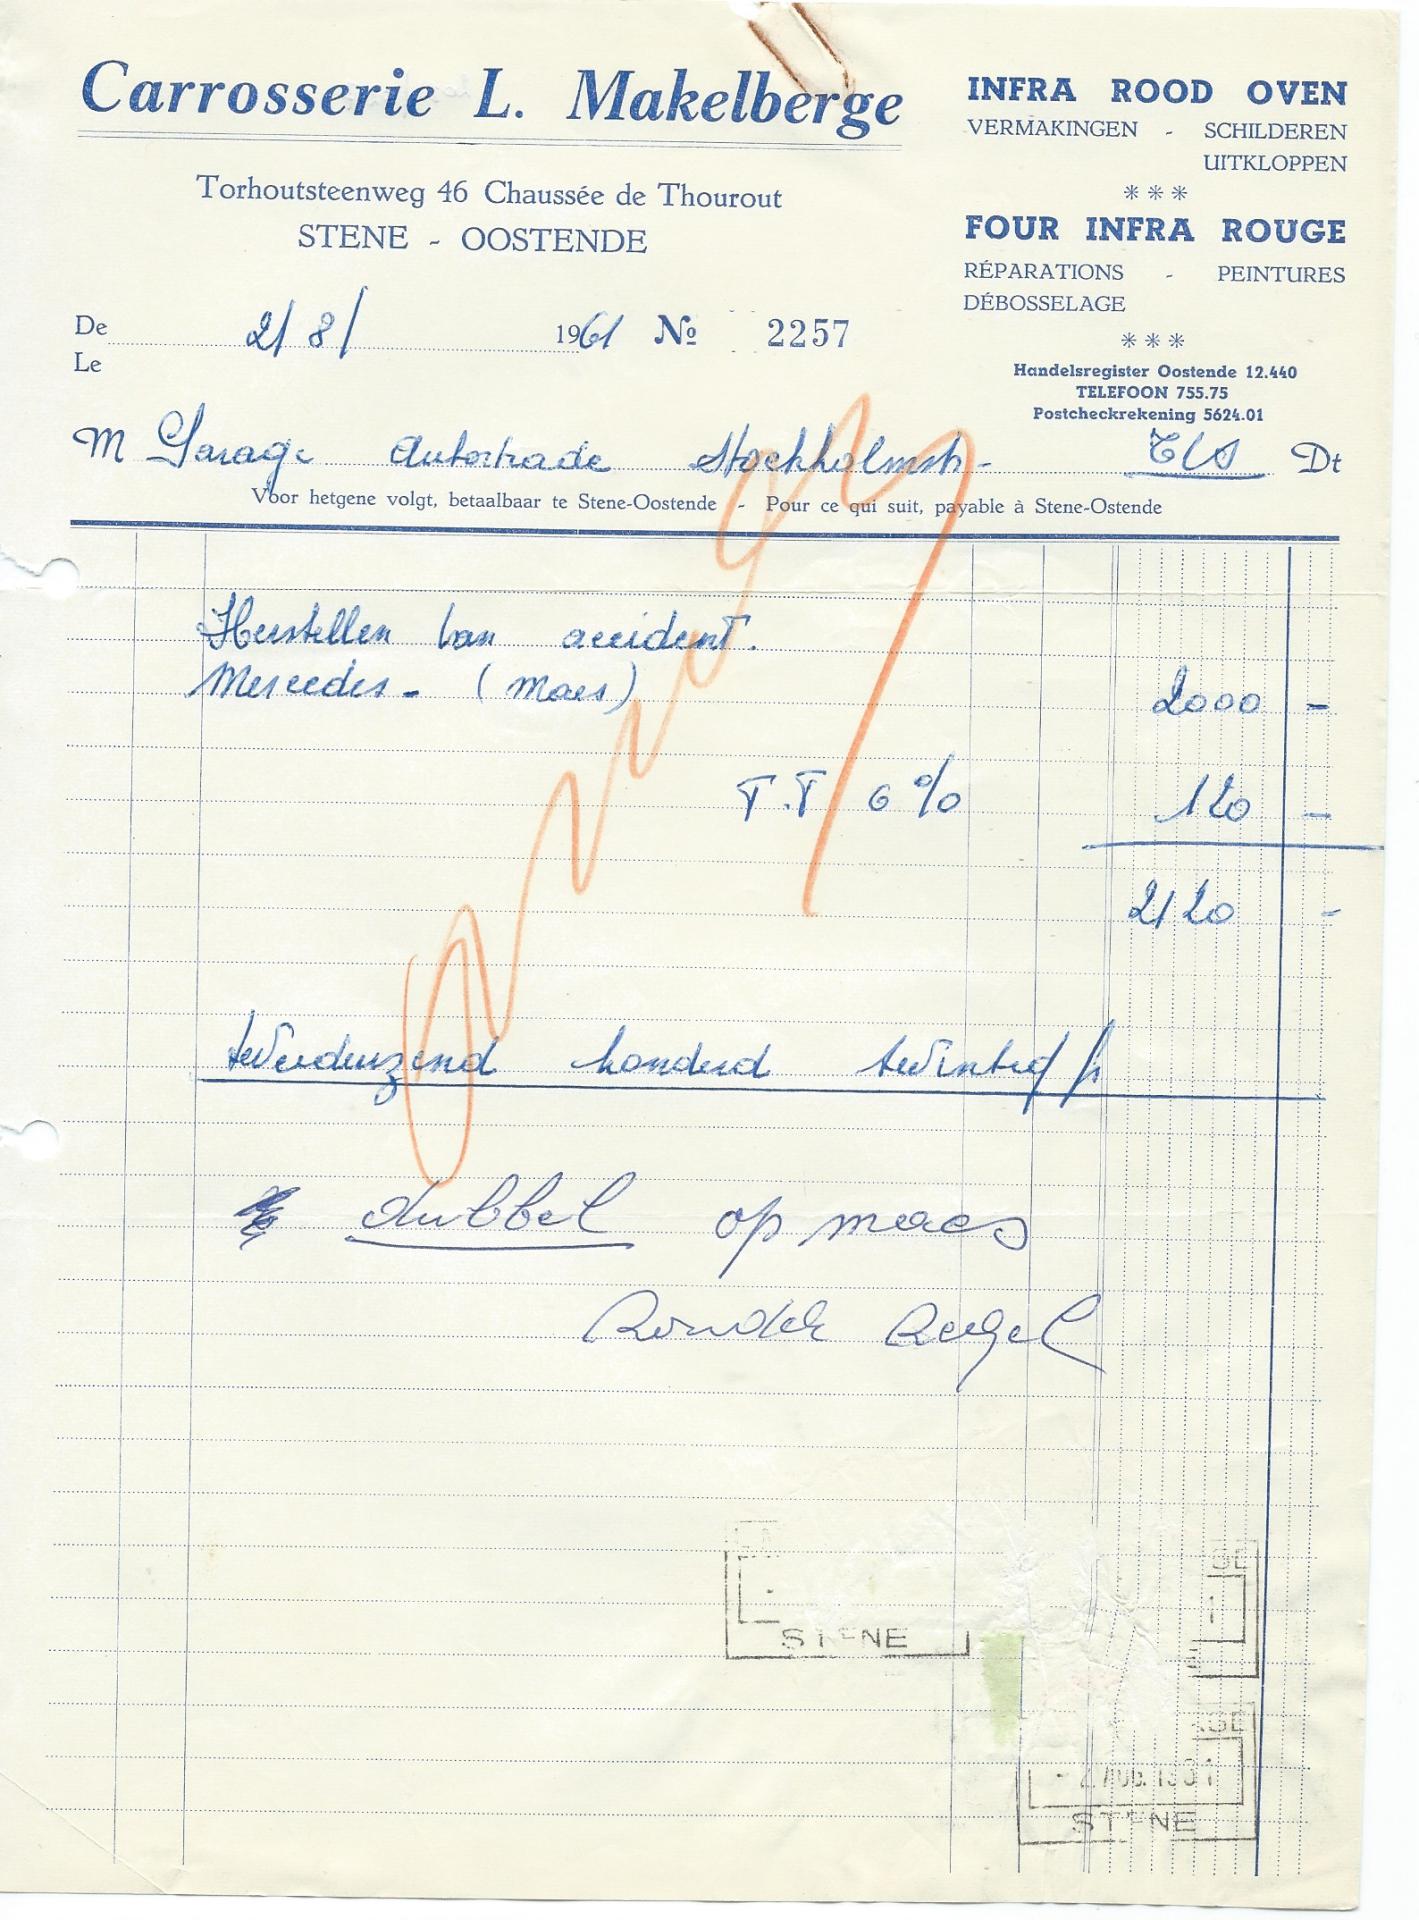 Carrosserie L. Makelberge
Torhoutsteenweg 46 Chaussée de Thourout
STENE - OOSTENDE
INFRA ROOD OVEN
VERMAKINGEN - SCHILDEREN
UITKLOPPEN
***
FOUR INFRA ROUGE
RÉPARATIONS - PEINTURES
DÉBOSSELAGE
***
Handelsregister Oostende 12.440
TELEFOON 755.75
Postcheckrekening 5624.01
De 2/8/ 1961 No 2257
Le
M Garage Autostrade Stockholmstr- Dt
Voor hetgene volgt, betaalbaar te Stene-Oostende - Pour ce qui suit, payable à Stene-Ostende
Herstellen van accident.
Mercedes - (Maes) 2000 -
T.T 6% 120 -
2120 -
honderd fr
dubbel op maes
STENE
- 2 AUG. 1961
STENE